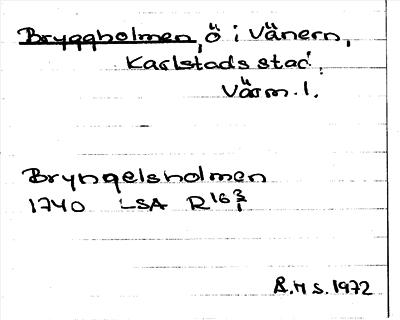 Bryggholmen, ö i Vänern,
Karlstads stad,
Värm. l.
Bryngelsholmen
1740 LSA R16 3/1
R.H S. 1972